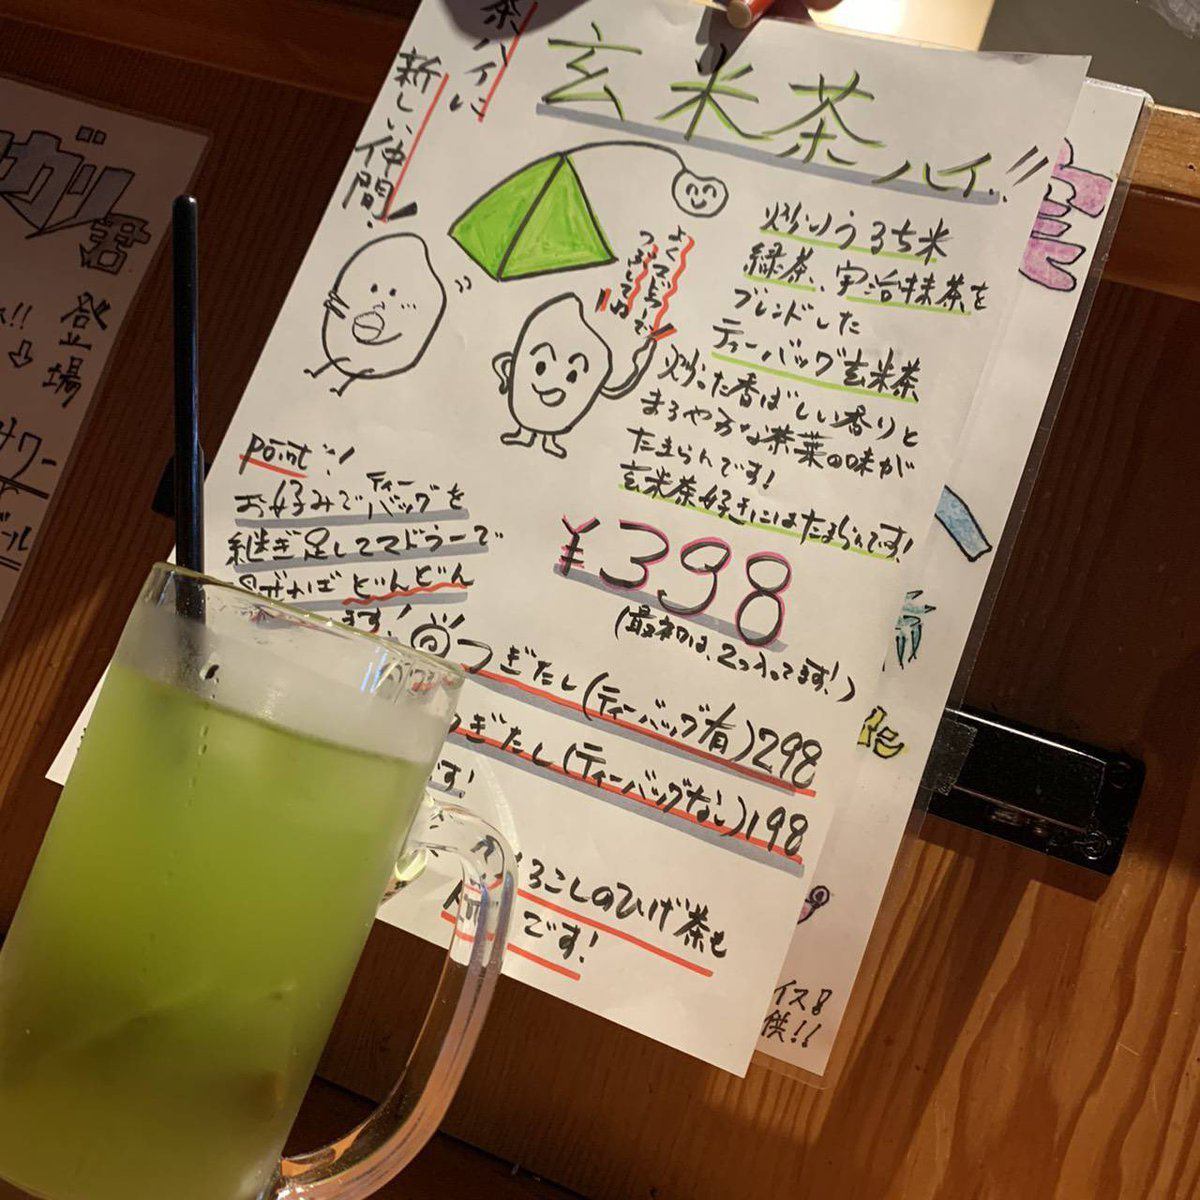 茶ハイに
新しい仲間!
玄米茶ハイ!!
よくマドラーで
つぶしてね!!
炒りうるち米
緑茶、宇治抹茶を
ブレンドした
ティーバッグ玄米茶
炒った香ばしい香りと
まろやかな茶葉の味が
たまらんです!
玄米茶好きにはたまらんです!
¥398
(最初は、2つ入ってます!)
point!
お好みでティーバッグを
継ぎ足してマドラーで
ばどんどん
ます!
つぎたし(ティーバッグ有)298
つぎたし(ティーバッグなし)198
です!
ろこしのひげ茶も
です!
ガリ
君
登場
サワー
ール
イス!
供!!